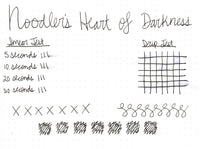 Noodler's Heart of Darkness
Smear Test
5 seconds
10 seconds
20 seconds
30 seconds
Drip Test
X X X X X X X